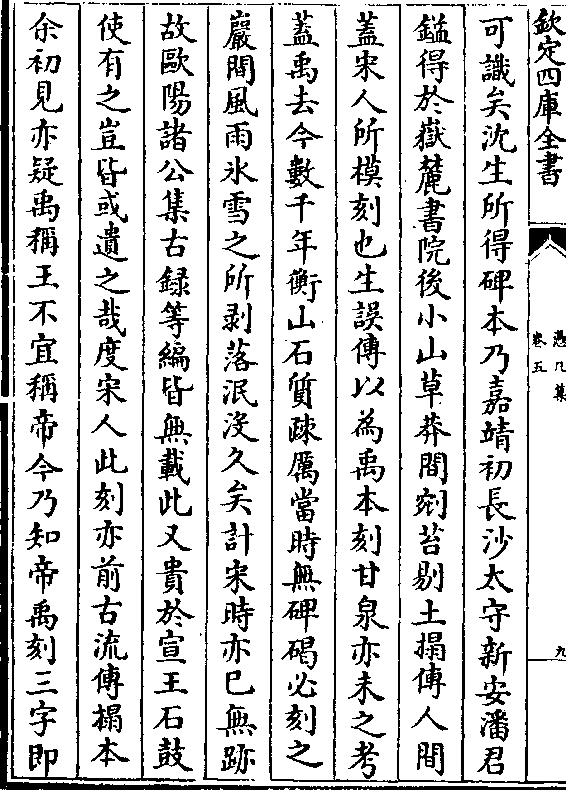 欽定四庫全書
憑几集
卷五
九
可識矣沈生所得碑本乃嘉靖初長沙太守新安潘君
鎰得於嶽麓書院後小山草莽間剜苔剔土搨傳人間
蓋宋人所模刻也生誤傳以為禹本刻甘泉亦未之考
蓋禹去今數千年衡山石質疎厲當時無碑碣必刻之
巖間風雨氷雪之所剥落泯没久矣計宋時亦已無跡
故歐陽諸公集古録等編皆無載此又貴於宣王石鼓
使有之豈皆或遺之哉度宋人此刻亦前古流傳榻本
余初見亦疑禹稱王不宜稱帝今乃知帝禹刻三字即